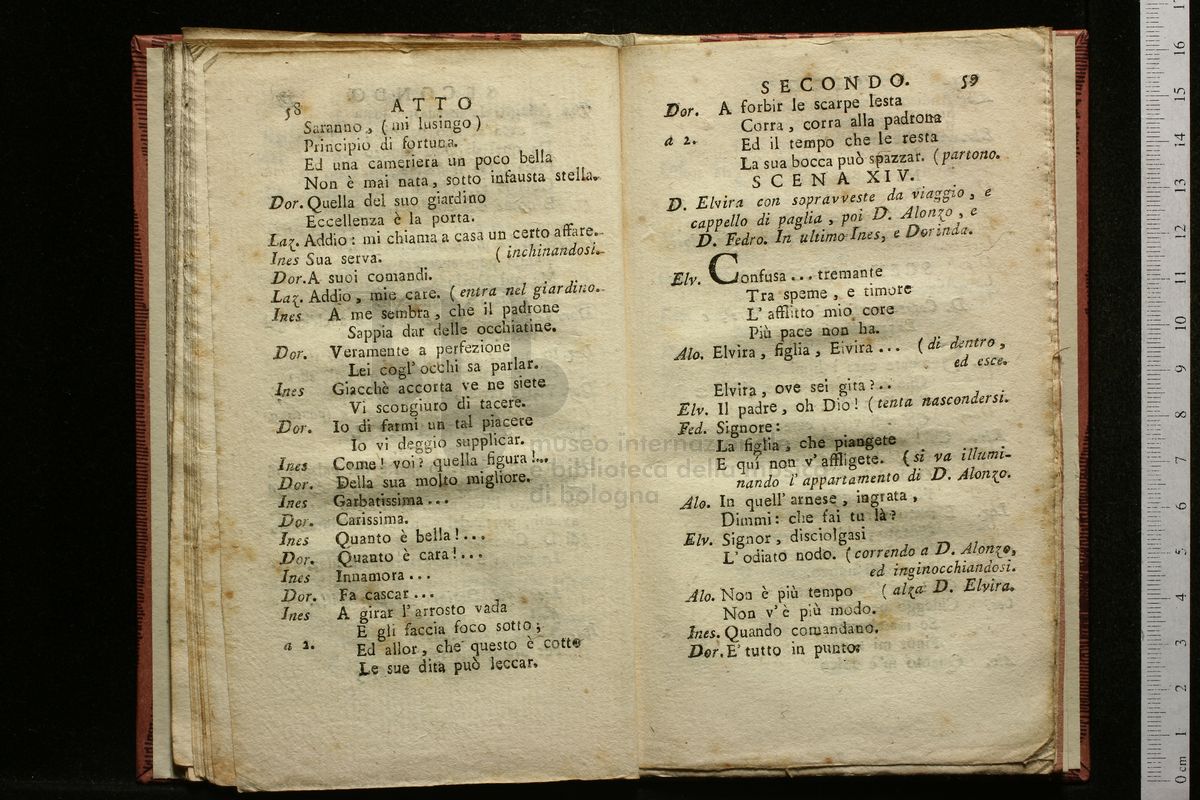 58 ATTO
Saranno, (mi lusingo)
Principio di fortuna.
Ed una cameriera un poco bella
Non è mai nata, sotto infausta stella.
Dor. Quella del suo giardino
Eccellenza è la porta.
Laz. Addio: mi chiama a casa un certo affare.
Ines Sua serva. (inchinandosi.
Dor. A suoi comandi.
Laz. Addio, mie care. (entra nel giardino.
Ines A me sembra, che il padrone
Sappia dar delle occhiatine.
Dor. Veramente a perfezione
Lei cogl' occhi sa parlar.
Ines Giacchè accorta ve ne siete
Vi scongiuro di tacere.
Dor. Io di farmi un tal piacere
Io vi deggio supplicar.
Ines Come! voi? quella figura!...
Dor. Della sua molto migliore.
Ines Garbatissima...
Dor. Carissima.
Ines Quanto è bella!...
Dor. Quanto è cara!...
Ines Innamora...
Dor. Fa cascar...
Ines A girar l'arrosto vada
E gli faccia foco sotto;
a 2. Ed allor, che questo è cotto
Le sue dita può leccar.
SECONDO. 59
Dor. A forbir le scarpe lesta
Corra, corra alla padrona
a 2. Ed il tempo che le resta
La sua bocca può spazzar. (partono.
SCENA XIV.
D. Elvira con sopravveste da viaggio, e
cappello di paglia, poi D. Alonzo, e
D. Fedro. In ultimo Ines, e Dorinda.
Elv. Confusa... tremante
Tra speme, e timore
L' afflitto mio core
Più pace non ha.
Alo. Elvira, figlia, Elvira... (di dentro,
ed esce.
Elvira, ove sei gita?..
Elv. Il padre, oh Dio! (tenta nascondersi.
Fed. Signore:
La figlia, che piangete
E quì non v'affligete. (si va illumi-
nando l'appartamento di D. Alonzo.
Alo. In quell' arnese, ingrata,
Dimmi: che fai tu là?
Elv. Signor, disciolgasi
L' odiato nodo. (correndo a D. Alonzo,
ed inginocchiandosi.
Alo. Non è più tempo (alza D. Elvira.
Non v'è più modo.
Ines. Quando comandano.
Dor. E' tutto in punto:
museo internazionale
e biblioteca della musica
di bologna
0 cm 1 2 3 4 5 6 7 8 9 10 11 12 13 14 15 16 17